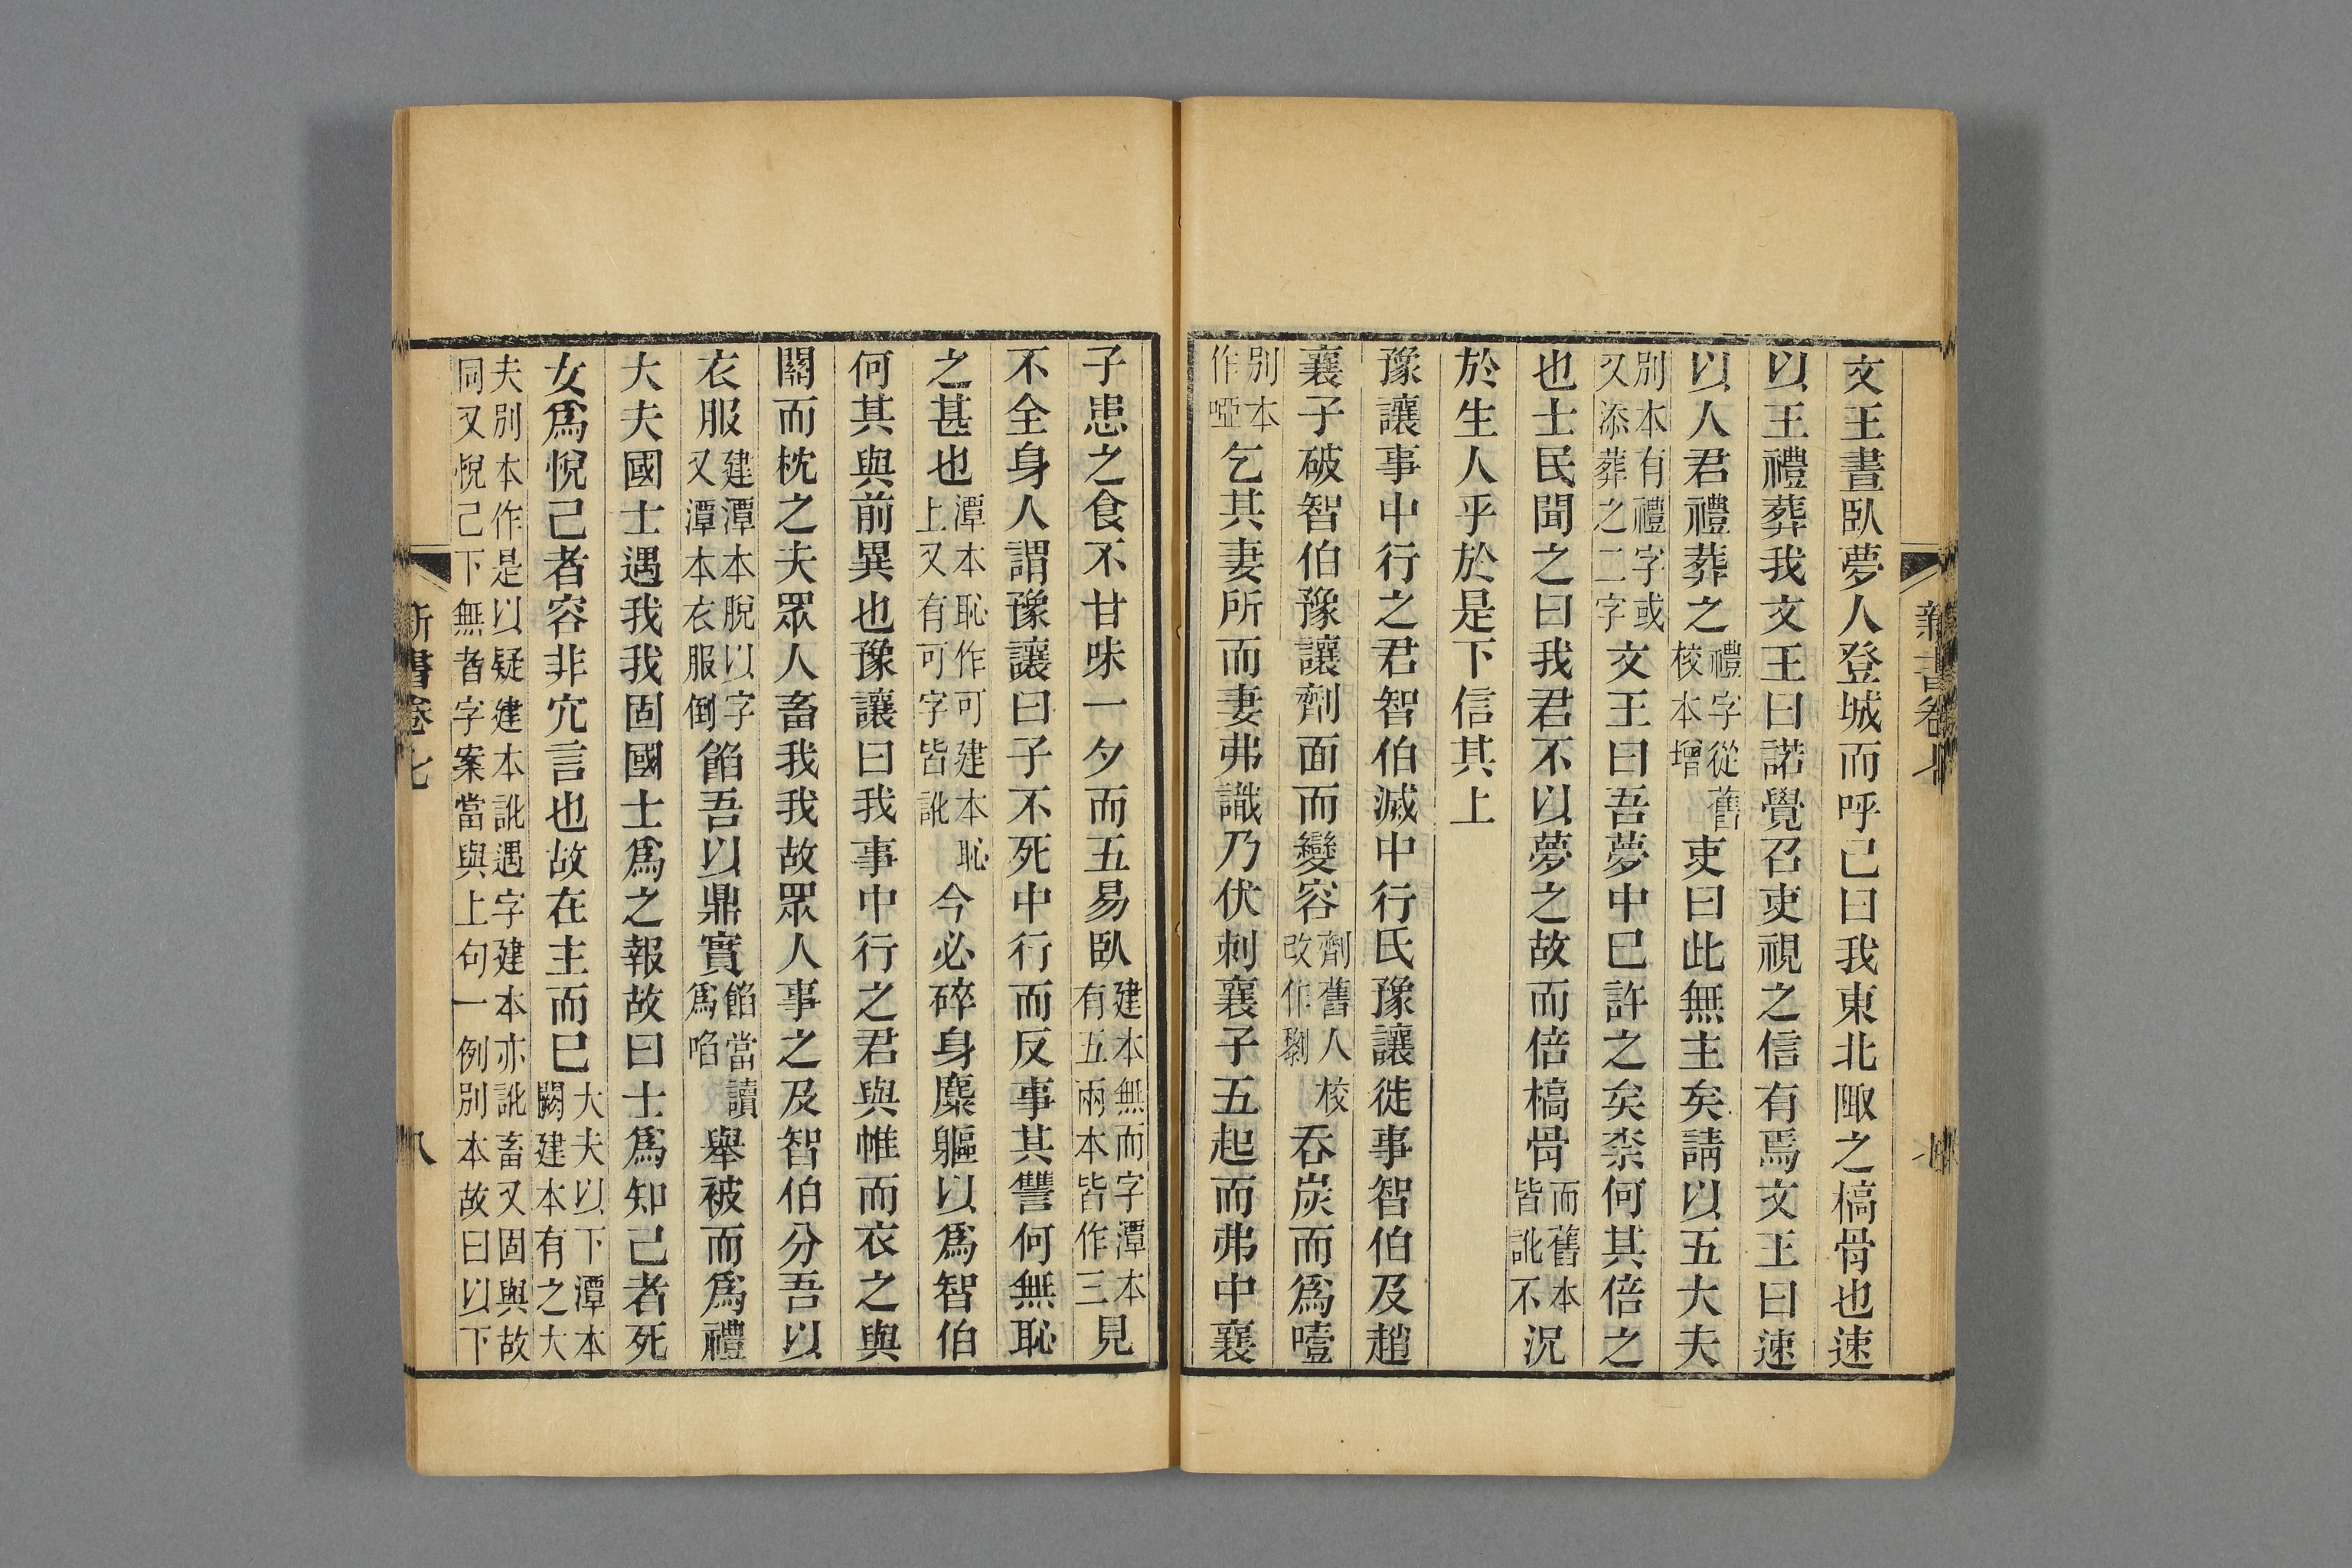 新書卷七
七
文王晝臥夢人登城而呼己曰我東北陬之槁骨也速
以王禮葬我文王曰諾覺召吏視之信有焉文王曰速
以人君禮葬之禮字從舊校本增吏曰此無主矣請以五大夫
別本有禮字或又添葬之二字文王曰吾夢中已許之矣柰何其倍之
也士民聞之曰我君不以夢之故而倍槁骨而舊本皆訛不況
於生人乎於是下信其上
豫讓事中行之君智伯滅中行氏豫讓徙事智伯及趙
襄子破智伯豫讓劑面而變容劑舊人校改作剺吞炭而為噎
別本作啞乞其妻所而妻弗識乃伏刺襄子五起而弗中襄
子患之食不甘味一夕而五易臥建本無而字潭本有五兩本皆作三見
不全身人謂豫讓曰子不死中行而反事其讐何無恥
之甚也潭本恥作可建本恥上又有可字皆訛今必碎身麋軀以為智伯
何其與前異也豫讓曰我事中行之君與帷而衣之與
關而枕之夫眾人畜我我故眾人事之及智伯分吾以
衣服建潭本脫以字又潭本衣服倒餡吾以鼎實餡當讀為啗舉被而為禮
大夫國士遇我我固國士為之報故曰士為知己者死
女為悅己者容非冗言也故在主而已大夫以下潭本闕建本有之大
夫別本作是以疑建本訛遇字建本亦訛畜又固與故同又悅己下無者字案當與上句一例別本故曰以下
新書卷七
八